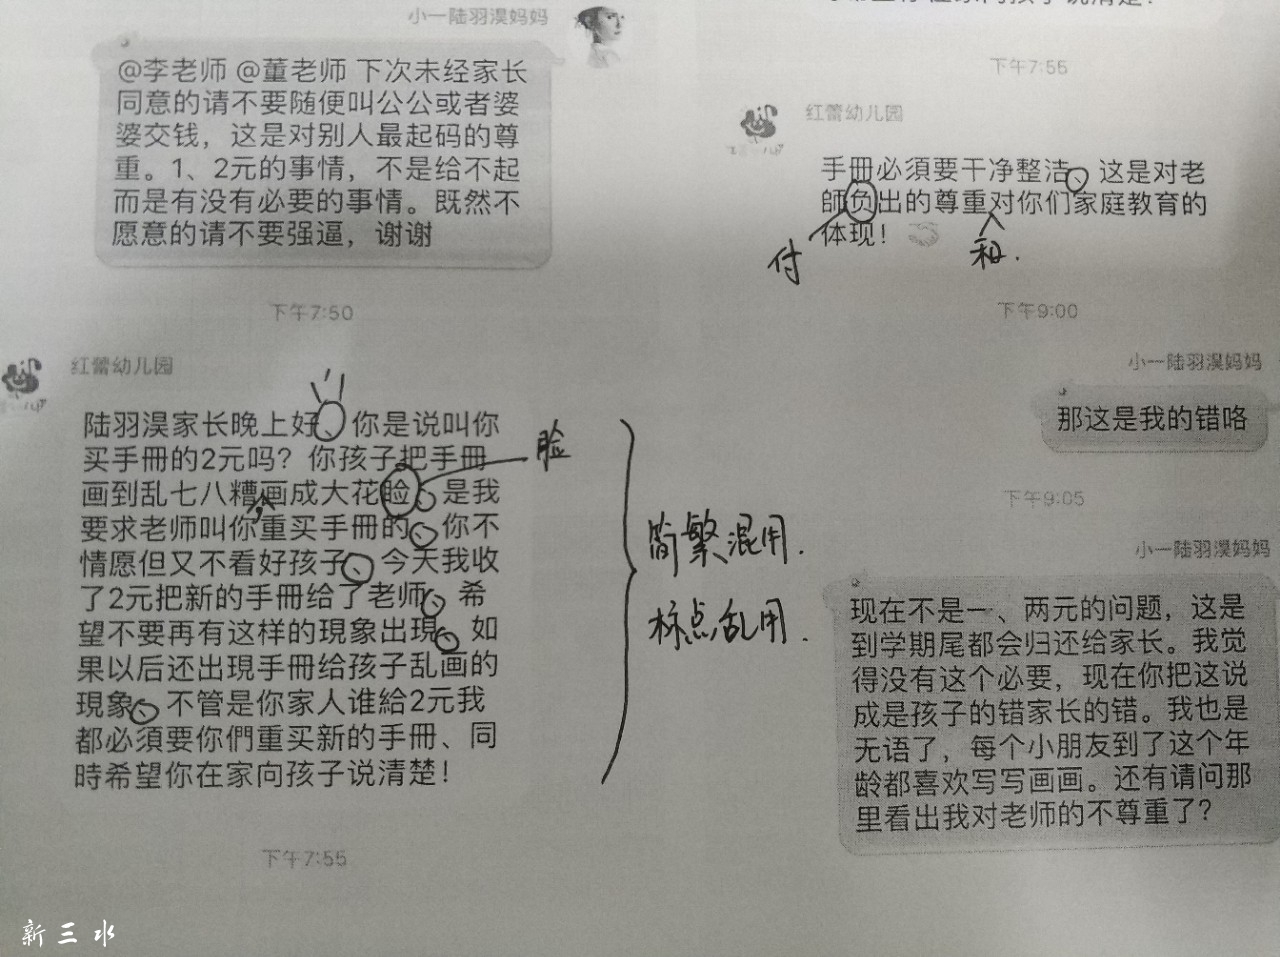 小一陆羽淏妈妈
@李老师 @董老师 下次未经家长
同意的请不要随便叫公公或者婆
婆交钱，这是对别人最起码的尊
重。1、2元的事情，不是给不起
而是有没有必要的事情。既然不
愿意的请不要强逼，谢谢
下午7:50
红蕾幼儿园
陆羽淏家长晚上好、你是说叫你
买手冊的2元吗？你孩子把手冊
画到乱七八糟画成大花睑、是我
要求老师叫你重买手冊的、你不
情愿但又不看好孩子、今天我收
了2元把新的手冊给了老师、希
望不要再有这样的現象出現、如
果以后还出現手冊给孩子乱画的
現象、不管是你家人谁給2元我
都必須要你們重买新的手冊、同
時希望你在家向孩子说清楚！
下午7:55
！
，
脸
简繁混用.
标点乱用.
下午7:55
红蕾幼儿园
手冊必須要干净整洁、这是对老
師负出的尊重对你们家庭教育的
体现！
付
和.
下午9:00
小一陆羽淏妈妈
那这是我的错咯
下午9:05
小一陆羽淏妈妈
现在不是一、两元的问题，这是
到学期尾都会归还给家长。我觉
得没有这个必要，现在你把这说
成是孩子的错家长的错。我也是
无语了，每个小朋友到了这个年
龄都喜欢写写画画。还有请问那
里看出我对老师的不尊重了？
新三水